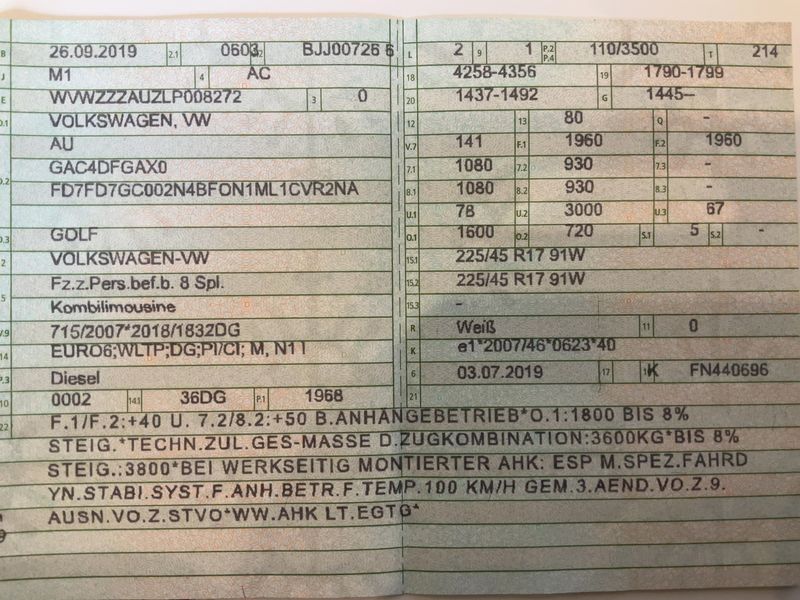 B 26.09.2019 2.1 0603 2.2 BJJ00726 6
J M1 4 AC
E WVWZZZAUZLP008272 3 0
D.1 VOLKSWAGEN, VW
AU
D.2 GAC4DFGAX0
FD7FD7GC002N4BFON1ML1CVR2NA
D.3 GOLF
2 VOLKSWAGEN-VW
Fz.z.Pers.bef.b. 8 Spl.
5 Kombilimousine
V.9 715/2007*2018/1832DG
14 EURO6;WLTP;DG;PI/CI; M, N1 I
P.3 Diesel
10 0002 14.1 36DG P.1 1968
L 2 9 1 P.2 P.4 110/3500 T 214
18 4258-4356 19 1790-1799
20 1437-1492 G 1445--
12 13 80 Q -
V.7 141 F.1 1960 F.2 1960
7.1 1080 7.2 930 7.3 -
8.1 1080 8.2 930 8.3 -
U.1 78 U.2 3000 U.3 67
O.1 1600 O.2 720 S.1 5 S.2 -
15.1 225/45 R17 91W
15.2 225/45 R17 91W
15.3 -
R Weiß 11 0
K e1*2007/46*0623*40
6 03.07.2019 17 K 16 FN440696
21
22 F.1/F.2:+40 U. 7.2/8.2:+50 B.ANHÄNGEBETRIEB*O.1:1800 BIS 8%
STEIG.*TECHN.ZUL.GES-MASSE D.ZUGKOMBINATION:3600KG*BIS 8%
STEIG.:3800*BEI WERKSEITIG MONTIERTER AHK: ESP M.SPEZ.FAHRD
YN.STABI.SYST.F.ANH.BETR.F.TEMP.100 KM/H GEM.3.AEND.VO.Z.9.
AUSN.VO.Z.STVO*WW.AHK LT.EGTG*